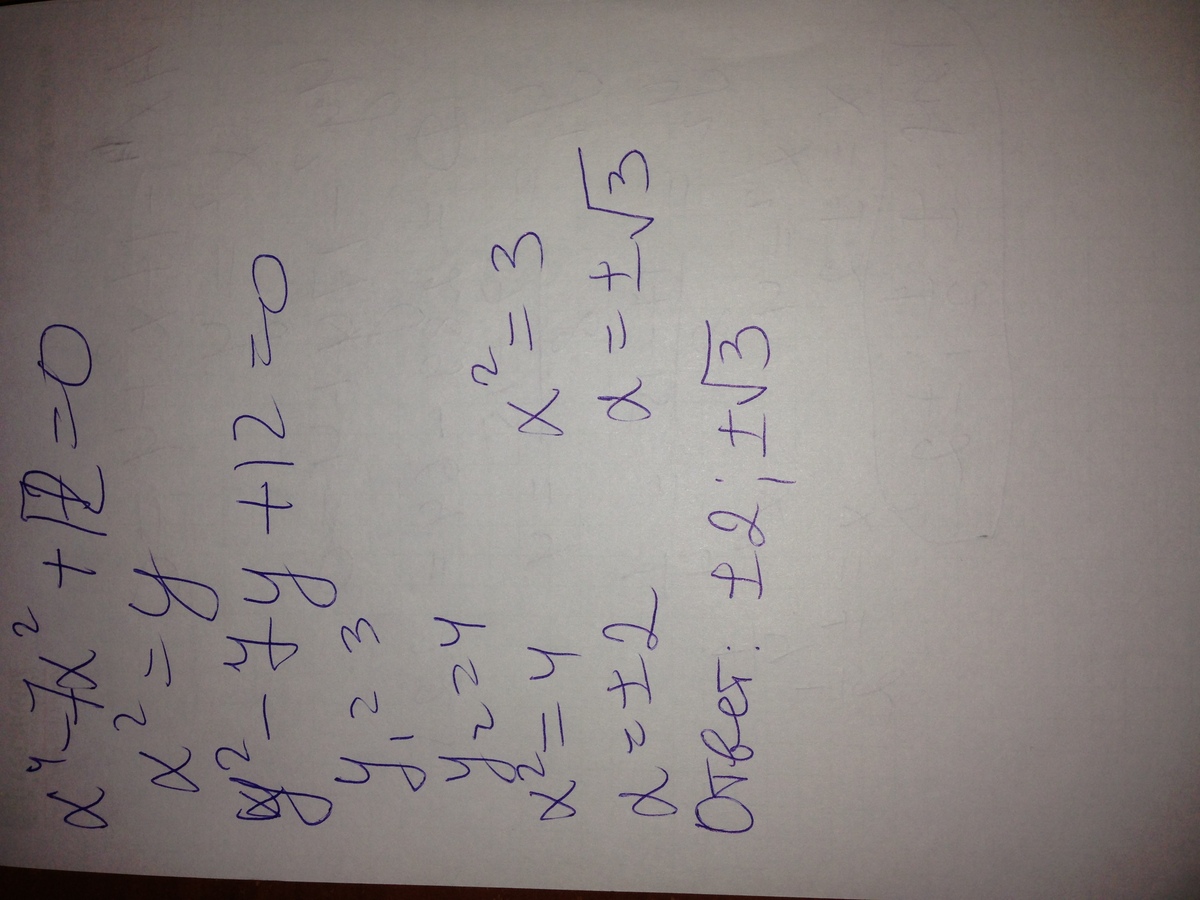 x⁴-7x²+12=0
x²=y
y²-7y+12=0
y₁=3
y₂=4
x²=4 x²=3
x=±2 x=±√3
Ответ: ±2; ±√3